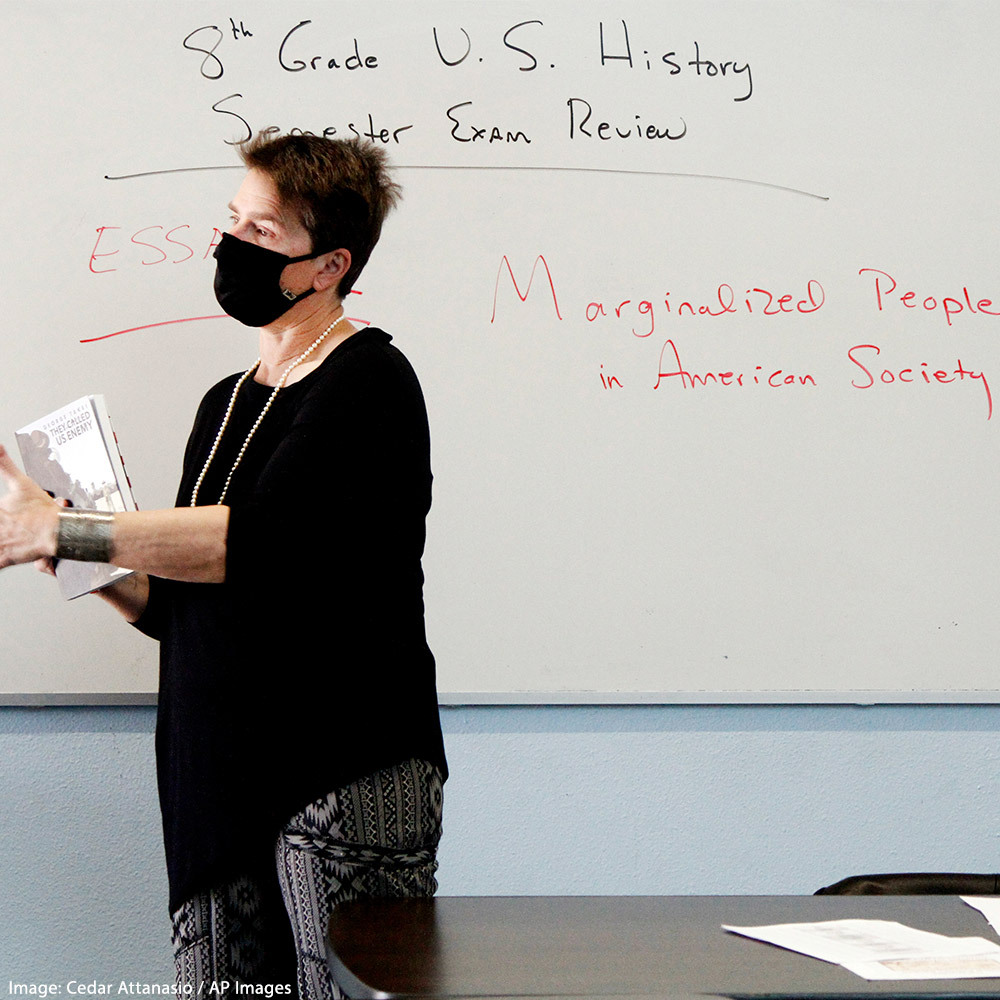 8th Grade U.S. History
Semester Exam Review
ESSA
Marginalized People
in American Society
GEORGE TAKEI
THEY CALLED
US ENEMY
Image: Cedar Attanasio / AP Images